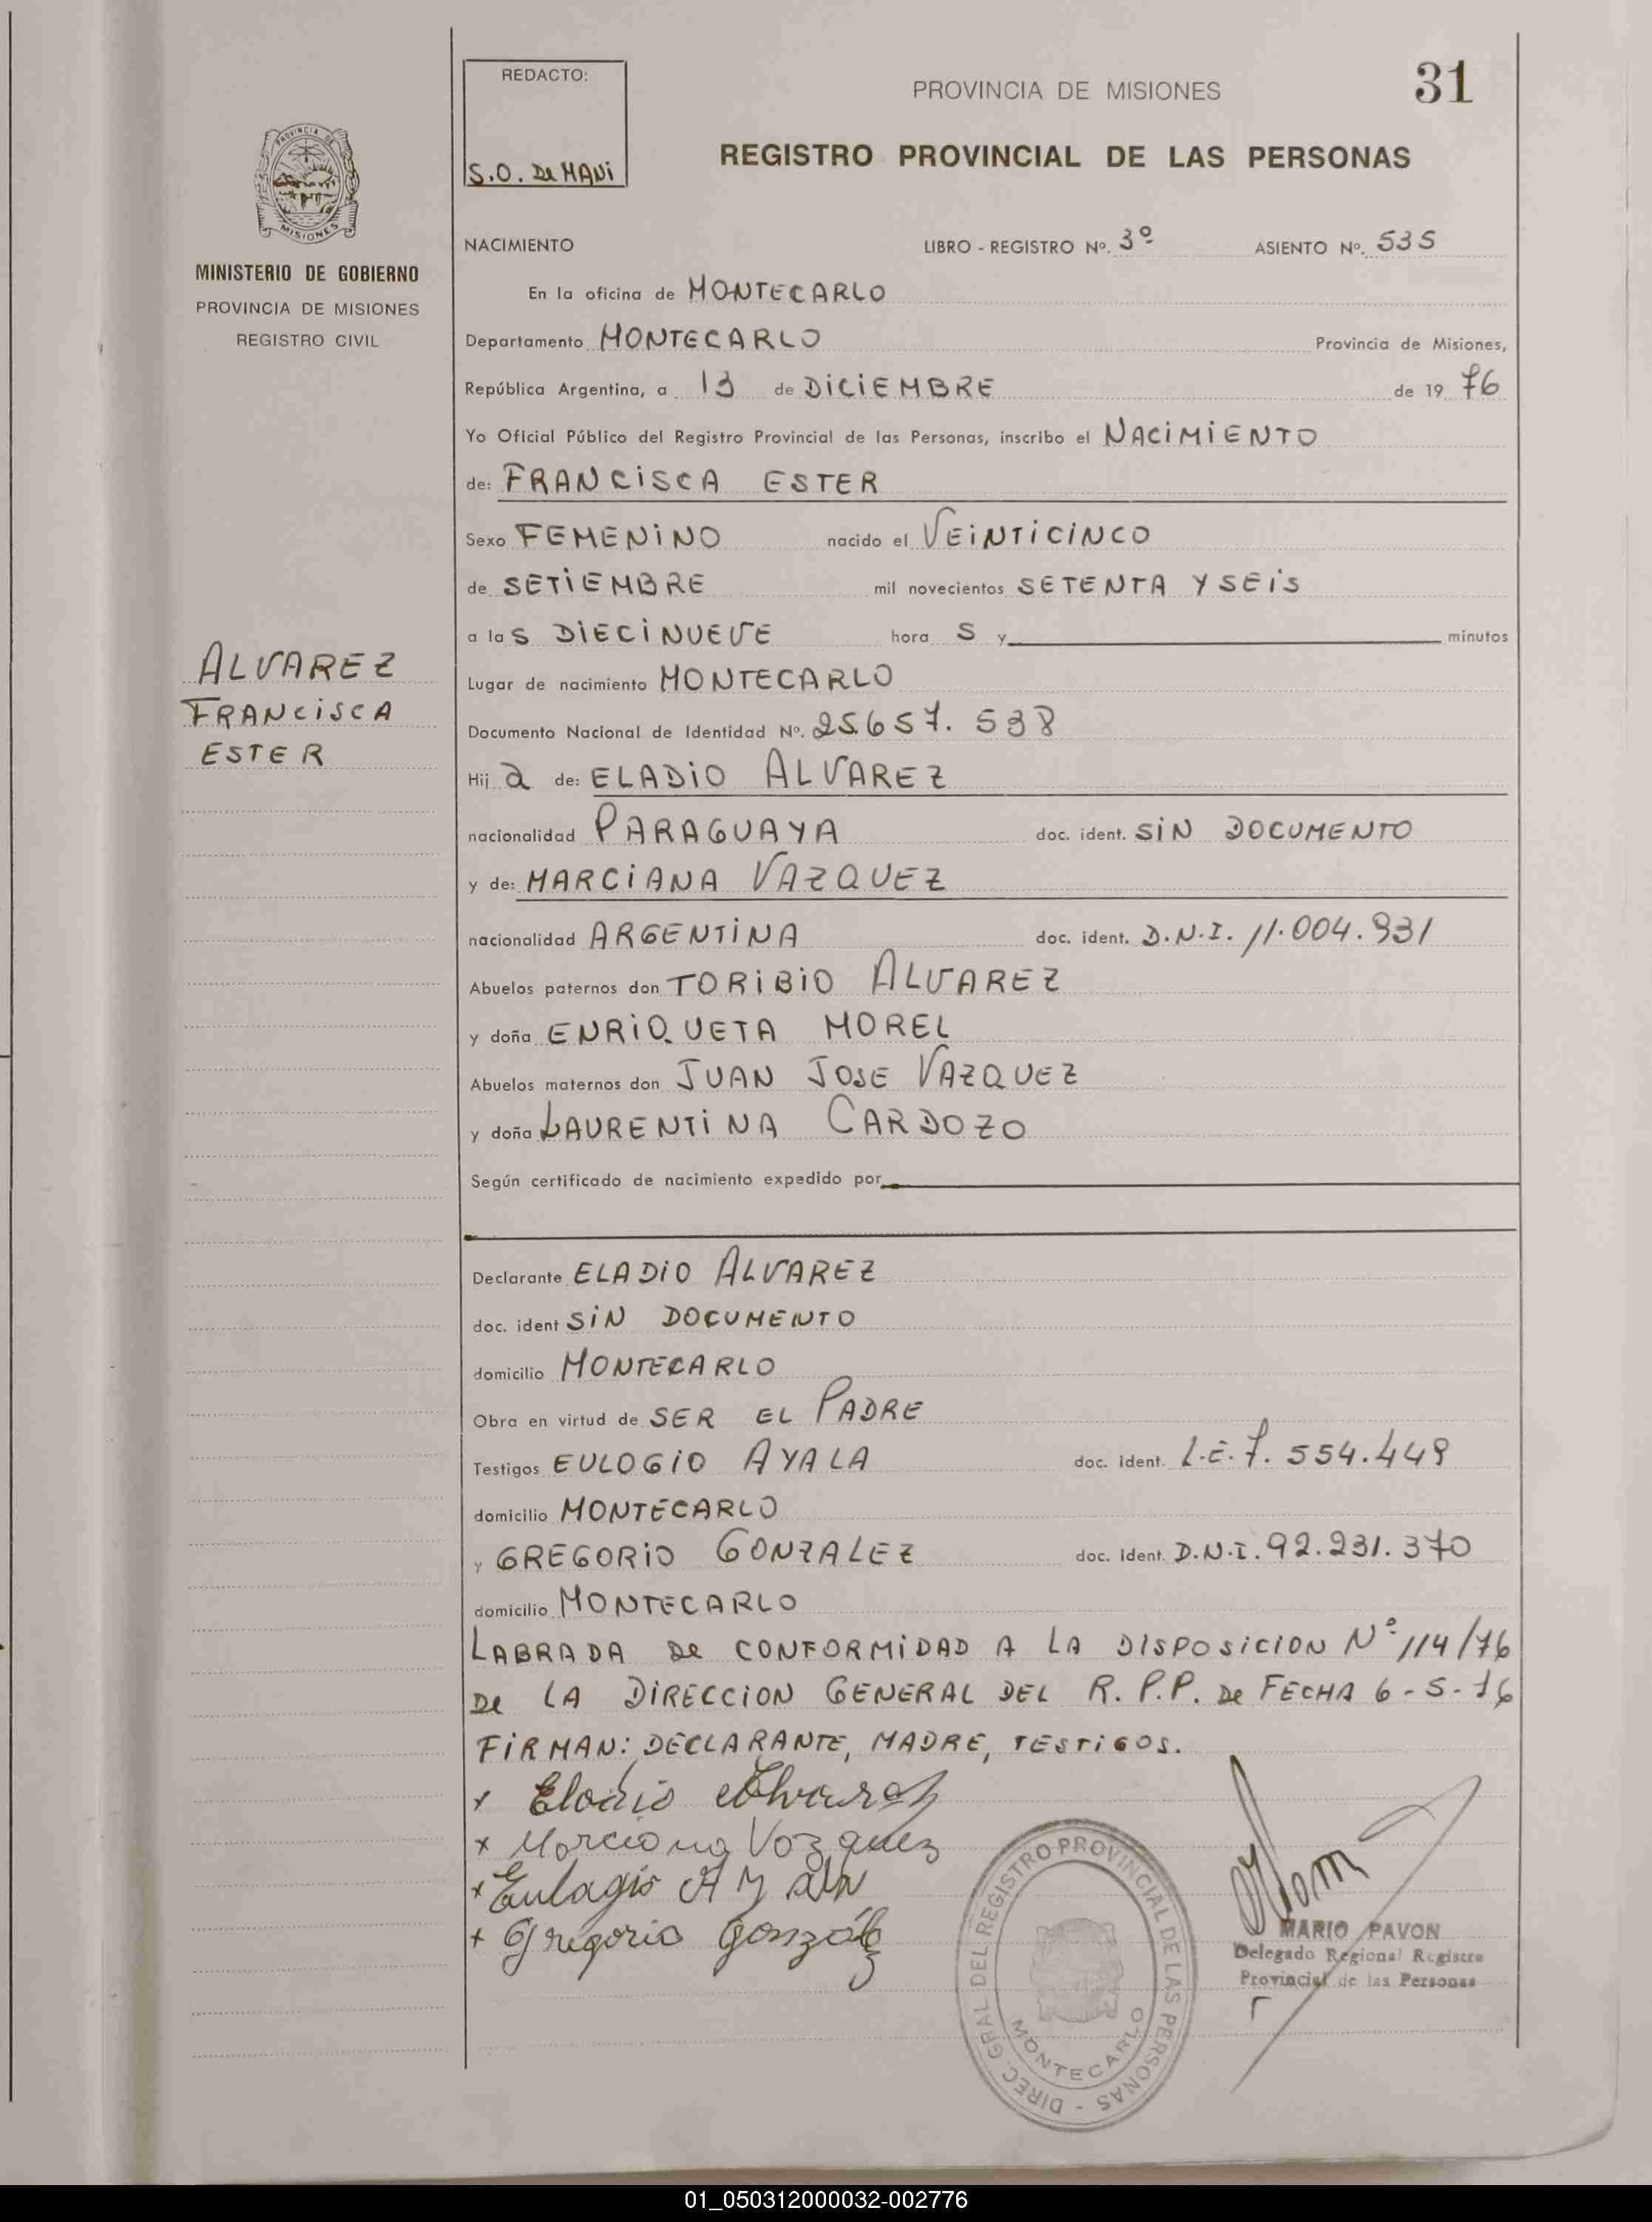 31
REDACTO:
S.O. De MAVi
PROVINCIA DE MISIONES
REGISTRO PROVINCIAL DE LAS PERSONAS
PROVINCIA DE
MISIONES
MINISTERIO DE GOBIERNO
PROVINCIA DE MISIONES
REGISTRO CIVIL
ALVAREZ
FRANCISCA
ESTER
NACIMIENTO LIBRO - REGISTRO Nº. 3º ASIENTO Nº. 535
En la oficina de MONTECARLO
Departamento MONTECARLO Provincia de Misiones,
República Argentina, a 13 de DICIEMBRE de 19 76
Yo Oficial Público del Registro Provincial de las Personas, inscribo el NACIMIENTO
de: FRANCISCA ESTER
Sexo FEMENINO nacido el VEINTICINCO
de SETIEMBRE mil novecientos SETENTA Y SEIS
a las DIECINUEVE hora S y minutos
Lugar de nacimiento MONTECARLO
Documento Nacional de Identidad Nº. 25.657.538
Hij a de: ELADIO ALVAREZ
nacionalidad PARAGUAYA doc. ident. SIN DOCUMENTO
y de: MARCIANA VAZQUEZ
nacionalidad ARGENTINA doc. ident. D.N.I. 11.004.931
Abuelos paternos don TORIBIO ALVAREZ
y doña ENRIQUETA MOREL
Abuelos maternos don JUAN JOSE VAZQUEZ
y doña LAURENTINA CARDOZO
Según certificado de nacimiento expedido por
Declarante ELADIO ALVAREZ
doc. ident SIN DOCUMENTO
domicilio MONTECARLO
Obra en virtud de SER EL PADRE
Testigos EULOGIO AYALA doc. ident. L.E. 7.554.449
domicilio MONTECARLO
y GREGORIO GONZALEZ doc. ident. D.N.I. 92.231.370
domicilio MONTECARLO
LABRADA De CONFORMIDAD A LA DISPOSICION Nº 114/76
De LA DIRECCION GENERAL DEL R.P.P. De FECHA 6-5-76
FIRMAN: DECLARANTE, MADRE, TESTIGOS.
x Eladio Alvarez
x Marciana Vazquez
x Eulogio Ayala
x Gregorio González
DIREC. GRAL DEL REGISTRO PROVINCIAL DE LAS PERSONAS -
MONTECARLO
MARIO PAVON
Delegado Regional Registro
Provincial de las Personas
01_050312000032-002776